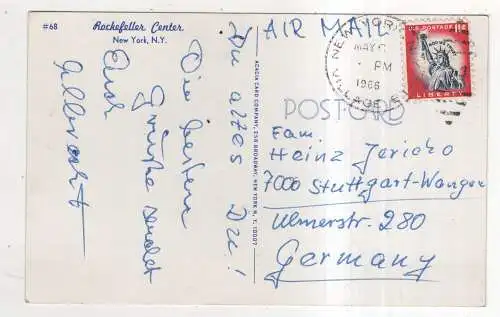 #68
Rockefeller Center
New York, N.Y.
AIR MAIL
U.S. POSTAGE 11¢
LIBERTY
NEW YORK
MAY
PM
1966
VILLAGE
POSTCARD
ACACIA CARD COMPANY, 258 BROADWAY, NEW YORK, N. Y. 10007
Du altes Du!
Die besten
Grüße sendet
Euch
Albrecht
Fam.
Heinz Jericho
7000 Stuttgart-Wangen
Ulmerstr. 280
Germany